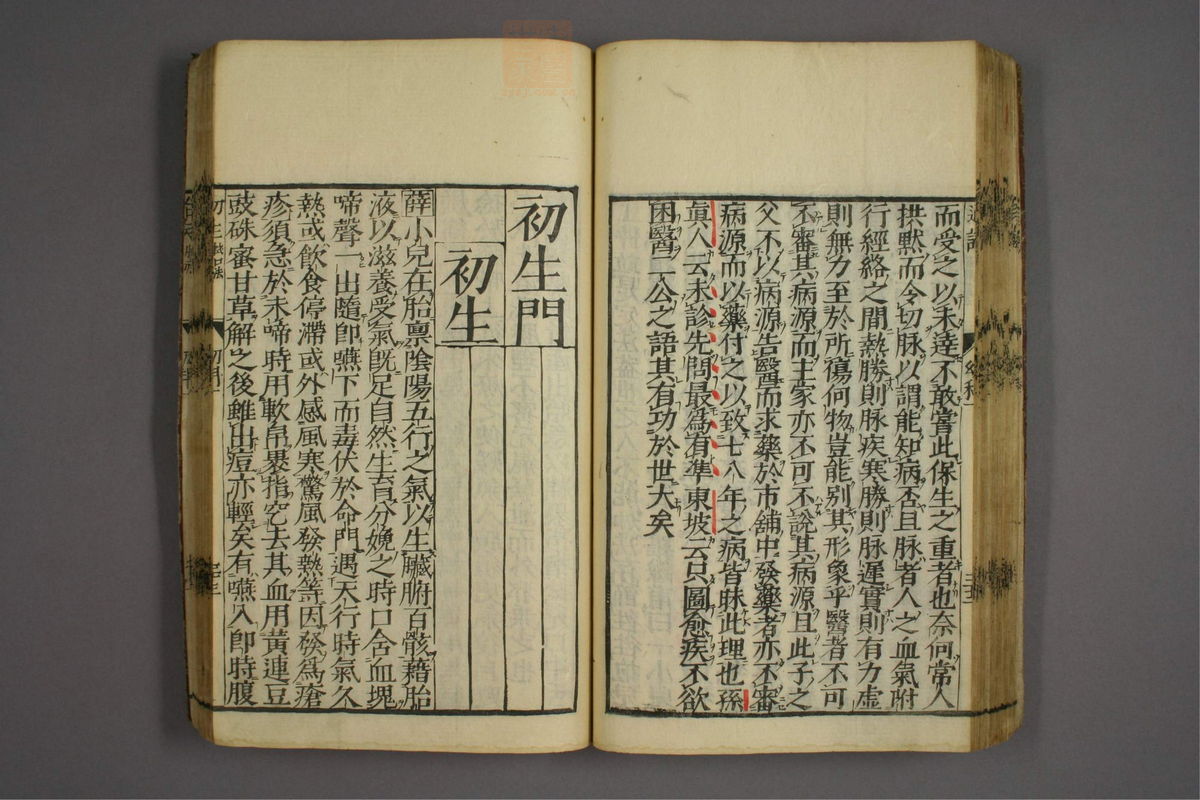 而受之以未達不敢嘗此保生之重者也奈何常人
拱默而令切脉以謂能知病否且脉者人之血氣附
行經絡之間熱勝則脉疾寒勝則脉遲實則有力虛
則無力至於所傷何物豈能别其形象乎醫者不可
不審其病源而主家亦不可不說其病源且此子之
父不以病源告醫而求藥於市舖中發藥者亦不審
病源而以藥付之以致七八年之病皆昧此理也孫
眞人云未診先問最爲有準東坡云只圖愈疾不欲
困醫二公之語其有功於世大矣
初生門
初生
薛小兒在胎禀陰陽五行之氣以生臟腑百骸藉胎
液以滋養受氣旣足自然生育分娩之時口含血塊
啼聲一出隨卽嚥下而毒伏於命門遇天行時氣久
熱或飲食停滯或外感風寒驚風發熱等因發爲瘡
疹須急於未啼時用軟帛褁指挖去其血用黄連豆
豉硃蜜甘草解之後雖出痘亦輕矣有嚥入卽時腹